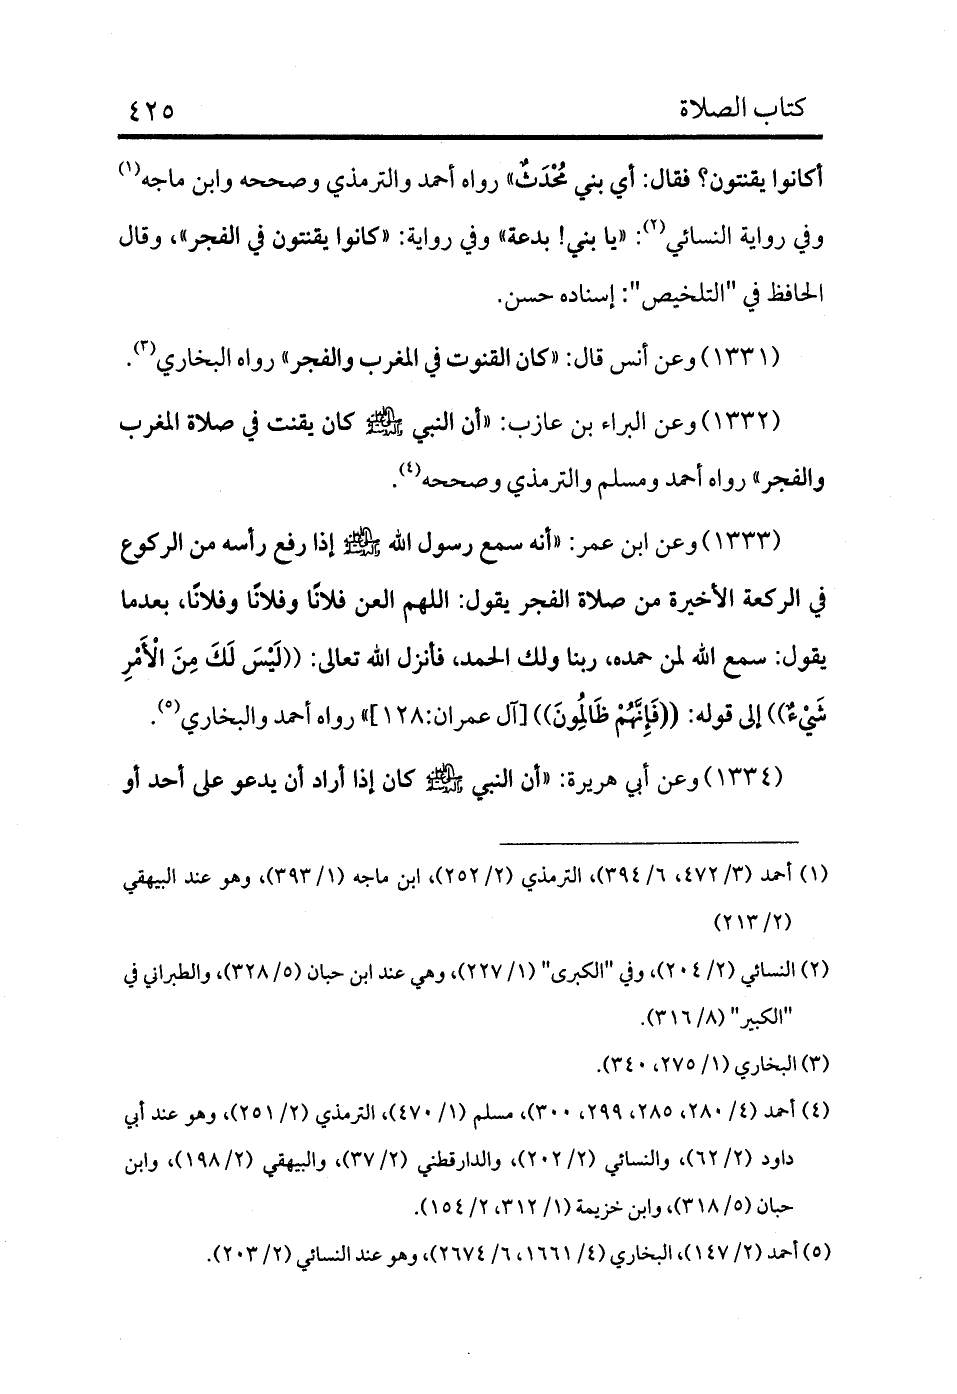 كتاب الصلاة ٤٢٥
أكانوا يقنتون؟ فقال: أي بني مُحْدَثٌ» رواه أحمد والترمذي وصححه وابن ماجه(١)
وفي رواية النسائي(٢): «يا بني! بدعة» وفي رواية: «كانوا يقنتون في الفجر»، وقال
الحافظ في "التلخيص": إسناده حسن.
(١٣٣١) وعن أنس قال: «كان القنوت في المغرب والفجر» رواه البخاري(٣).
(١٣٣٢) وعن البراء بن عازب: «أن النبي ﷺ كان يقنت في صلاة المغرب
والفجر» رواه أحمد ومسلم والترمذي وصححه(٤).
(١٣٣٣) وعن ابن عمر: «أنه سمع رسول الله ﷺ إذا رفع رأسه من الركوع
في الركعة الأخيرة من صلاة الفجر يقول: اللهم العن فلانًا وفلانًا وفلانًا، بعدما
يقول: سمع الله لمن حمده، ربنا ولك الحمد، فأنزل الله تعالى: ((لَيْسَ لَكَ مِنَ الْأَمْرِ
شَيْءٌ)) إلى قوله: ((فَإِنَّهُمْ ظَالِمُونَ)) [آل عمران:١٢٨]» رواه أحمد والبخاري(٥).
(١٣٣٤) وعن أبي هريرة: «أن النبي ﷺ كان إذا أراد أن يدعو على أحد أو
(١) أحمد (٣/ ٤٧٢، ٦/ ٣٩٤)، الترمذي (٢/ ٢٥٢)، ابن ماجه (١/ ٣٩٣)، وهو عند البيهقي
(٢/ ٢١٣)
(٢) النسائي (٢/ ٢٠٤)، وفي "الكبرى" (١/ ٢٢٧)، وهي عند ابن حبان (٥/ ٣٢٨)، والطبراني في
"الكبير" (٨/ ٣١٦).
(٣) البخاري (١/ ٢٧٥، ٣٤٠).
(٤) أحمد (٤/ ٢٨٠، ٢٨٥، ٢٩٩، ٣٠٠)، مسلم (١/ ٤٧٠)، الترمذي (٢/ ٢٥١)، وهو عند أبي
داود (٢/ ٦٢)، والنسائي (٢/ ٢٠٢)، والدارقطني (٢/ ٣٧)، والبيهقي (٢/ ١٩٨)، وابن
حبان (٥/ ٣١٨)، وابن خزيمة (١/ ٣١٢، ٢/ ١٥٤).
(٥) أحمد (٢/ ١٤٧)، البخاري (٤/ ١٦٦١، ٦/ ٢٦٧٤)، وهو عند النسائي (٢/ ٢٠٣).